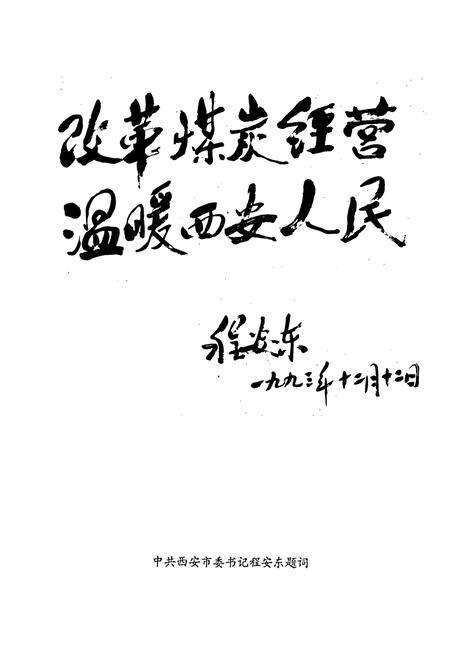 改革煤炭经营
温暖西安人民
程安东
一九九三年十二月十二日
中共西安市委书记程安东题词